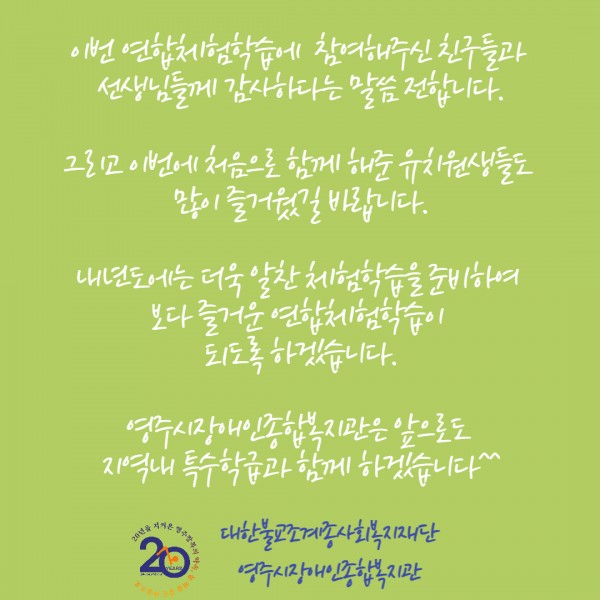 이번 연합체험학습에 참여해주신 친구들과
선생님들께 감사하다는 말씀 전합니다.
그리고 이번에 처음으로 함께 해준 유치원생들도
많이 즐거웠길 바랍니다.
내년도에는 더욱 알찬 체험학습을 준비하여
보다 즐거운 연합체험학습이
되도록 하겠습니다.
영주시장애인종합복지관은 앞으로도
지역내 특수학급과 함께 하겠습니다^^
20
YEARS
대한불교조계종사회복지재단
영주시장애인종합복지관